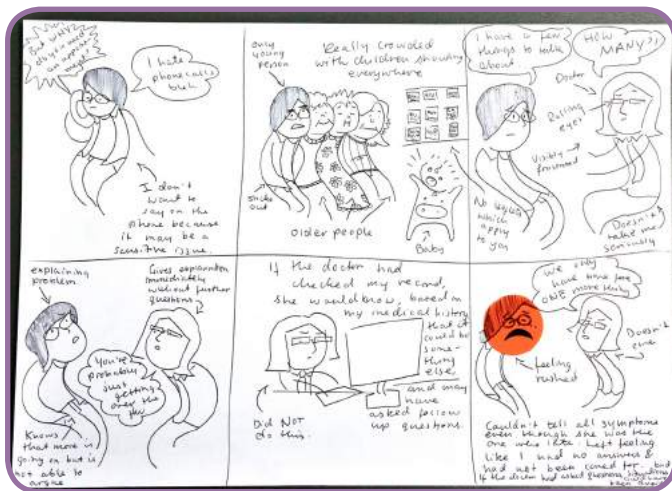 But why
do you need
an appoint-
ment?
I hate
phonecalls
but..
I don't
want to
say on the
phone because
it may be a
sensitive issue.
only
young
person
Really crowded
with children shouting
everywhere
older people
Baby
No leaflets
which
apply
to you
I have a few
things to talk
about
HOW
MANY?!
Doctor
Rolling
eyes
Visibly
frustrated
Doesn't
take me
seriously
explaining
problem
Gives explanation
immediately
without further
questions.
You're
probably
just
getting
over the
flu
Knows
that more is
going on but is
not able to
argue
If the doctor had
checked my record,
she would know, based on
my medical history
that it
could be
some-
thing
else,
and may
have
asked follow
up questions.
Did NOT
do this.
We only
have time for
ONE more thing
Doesn't
care
feeling
rushed
Couldn't tell all symptoms
even though she was the
one who's late. Left feeling
like I had no answers &
had not been cared for.
if the doctor had asked questions